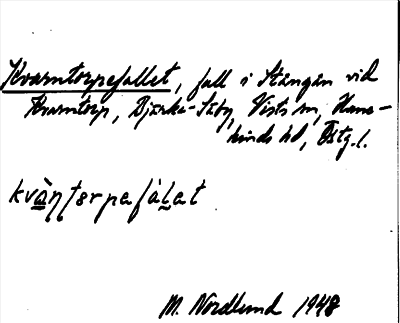 Kvarntorpefallet, fall i Stångån vid
Kvarntorp, Bjärka-Säby, Vists sn, Hane-
kinds hd, Östg.l.
kvàn̥tɛrpafàl̥at
M. Nordlund 1948